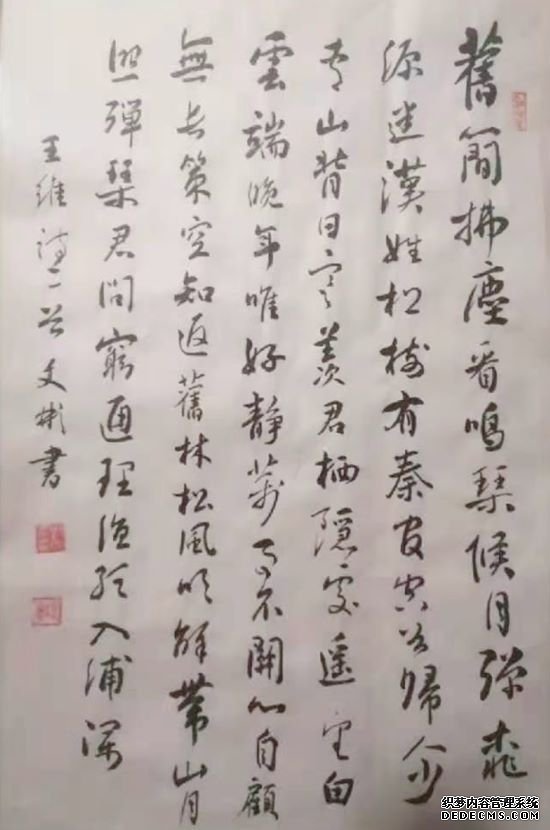 舊簡拂塵看鳴琴候月彈桃
源迷漢姓松樹有秦官空谷歸人少
青山背日寒羨君栖隱處遙望白
雲端晚年唯好靜萬事不關心自顧
無長策空知返舊林松風吹解帶山月
照彈琴君問窮通理漁歌入浦深
王維詩二首文彬書
织梦内容管理系统
DEDECMS.COM